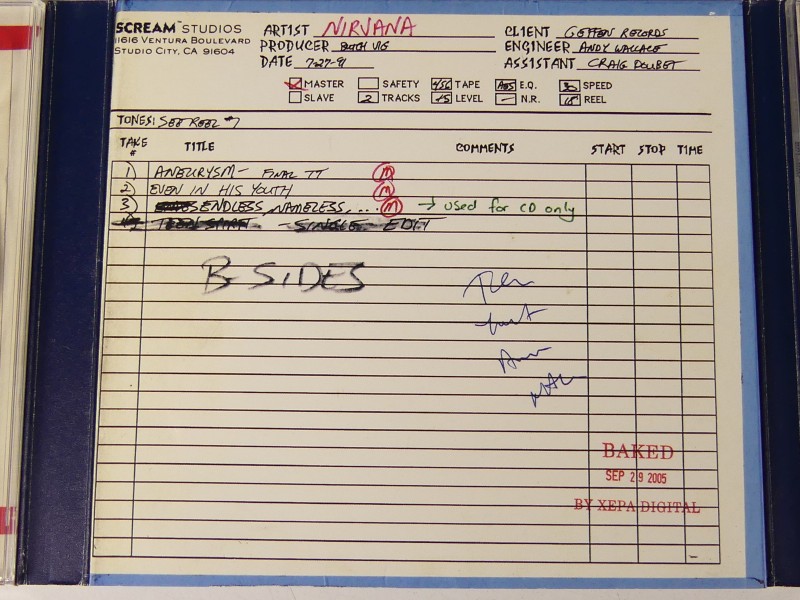 SCREAM™ STUDIOS
11616 VENTURA BOULEVARD
STUDIO CITY, CA 91604
ARTIST NIRVANA
PRODUCER BUTCH VIG
DATE 7-27-91
CLIENT GEFFEN RECORDS
ENGINEER ANDY WALLACE
ASSISTANT CRAIG DOUBET
MASTER SAFETY 456 TAPE E.Q. 30 SPEED
SLAVE 2 TRACKS +5 LEVEL — N.R. REEL
TONES: SEE REEL #7
TAKE # TITLE COMMENTS START STOP TIME
1) ANEURYSM - FINAL TT M
2) EVEN IN HIS YOUTH M
3) ENDLESS, NAMELESS... M → used for CD only
SINGLE EDIT
B-SIDES
BAKED
SEP 29 2005
BY XEPA DIGITAL